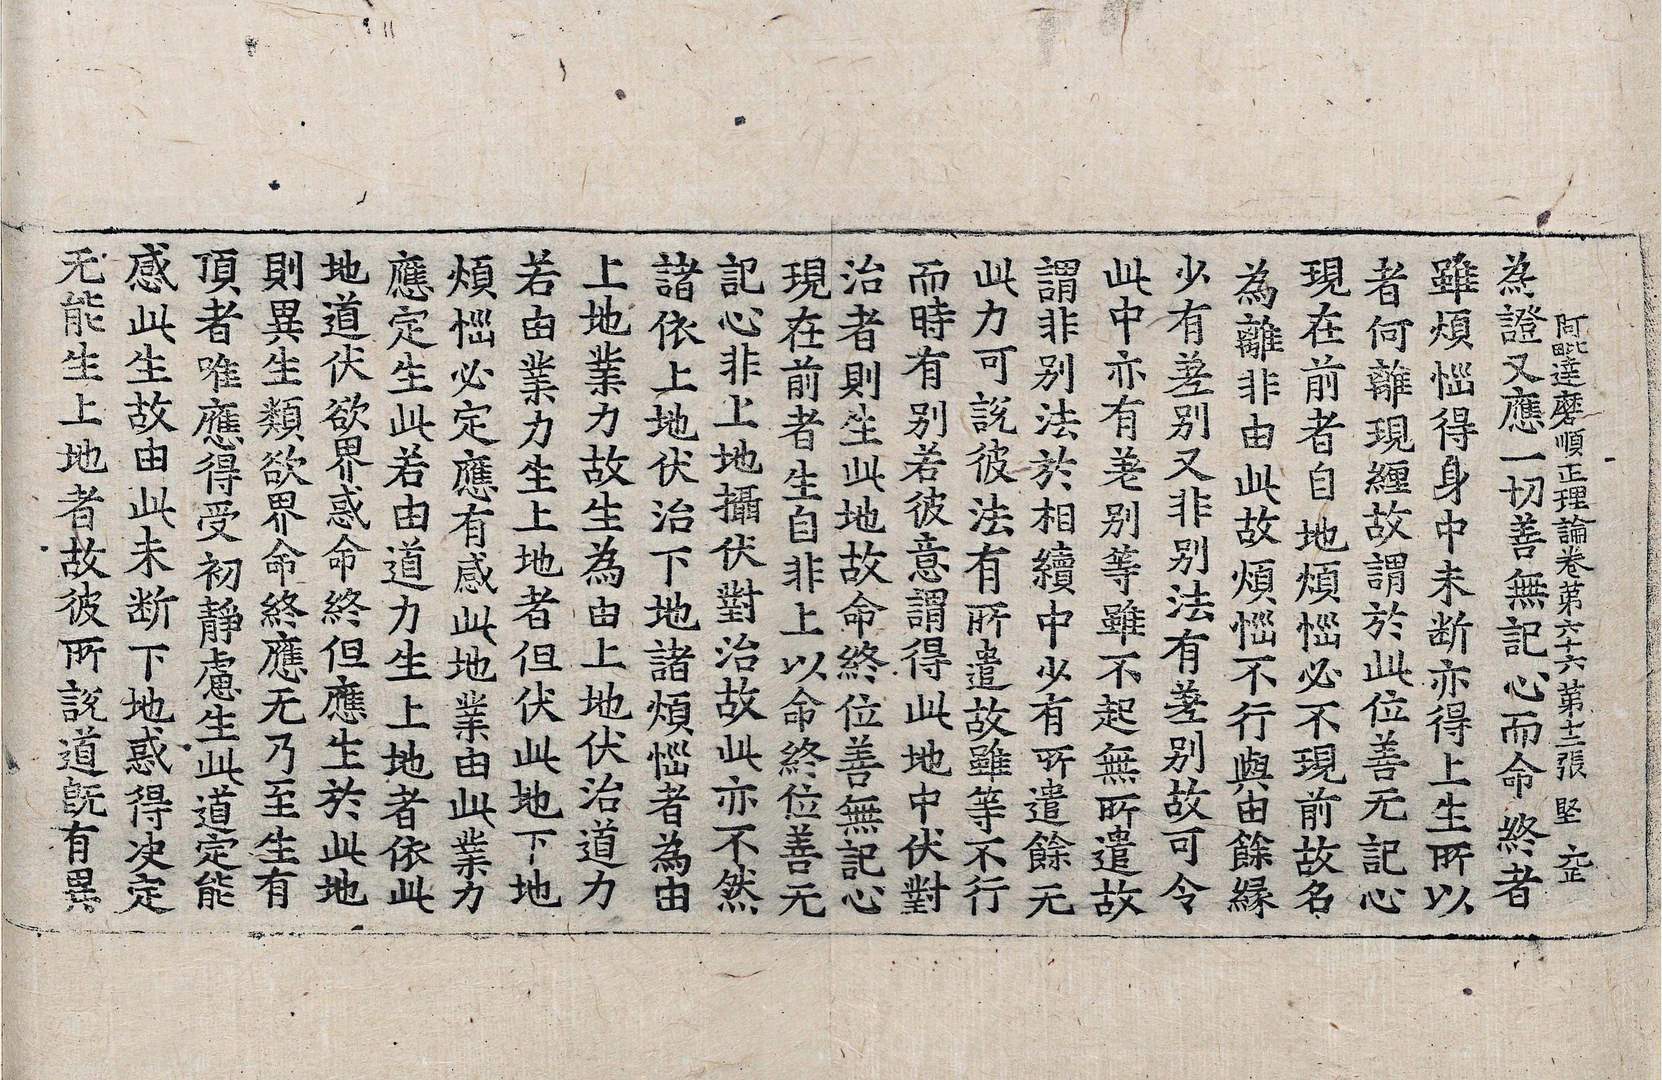 阿毗達磨順正理論卷第六十六 第十二張 堅
為證又應一切善無記心而命終者
雖煩惱得身中未断亦得上生所以
者何離現纏故謂於此位善无記心
現在前者自地煩惱必不現前故名
為離非由此故煩惱不行與由餘緣
少有差别又非别法有差别故可令
此中亦有差别等雖不起無所遣故
謂非别法於相續中少有所遣餘无
此力可說彼法有所遣故雖等不行
而時有别若彼意謂得此地中伏對
治者則生此地故命終位善無記心
現在前者生自非上以命終位善无
記心非上地攝伏對治故此亦不然
諸依上地伏治下地諸煩惱者為由
上地業力故生為由上地伏治道力
若由業力生上地者但伏此地下地
煩惱必定應有感此地業由此業力
應定生此若由道力生上地者依此
地道伏欲界惑命終但應生於此地
則異生類欲界命終應无乃至生有
頂者唯應得受初靜慮生此道定能
感此生故由此未断下地惑得决定
无能生上地者故彼所說道旣有異